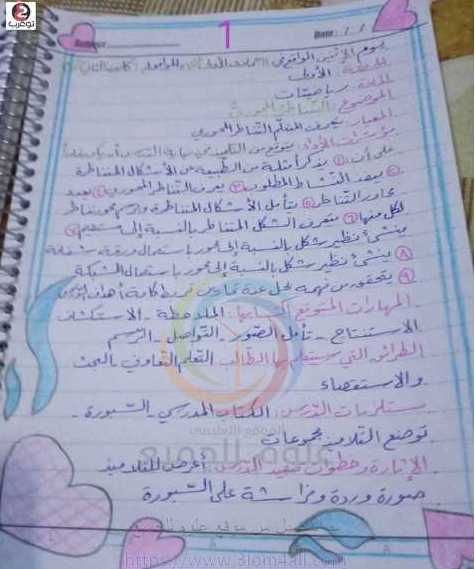 توعرب
1
Date: / /
يوم الإثنين الواقع في
الحصة: الأولى
المادة: رياضيات
الموضوع: التناظر المحوري
المعيار: يتعرف المتعلم التناظر المحوري
مؤشرات الأداء: يتوقع من التلميذ في نهاية الدرس أن يكون قادراً
على أن: ① يذكر أمثلة من الطبيعة عن الأشكال المتناظرة
② ينفذ النشاط المطلوب ③ يعرف التناظر المحوري ④ يعدد
محاور التناظر ⑤ يتأمل الأشكال المتناظرة ويرسم محور تناظر
لكل منها ⑥ يتعرف الشكل المتناظر بالنسبة إلى مستقيم ⑦
ينشئ نظير شكل بالنسبة إلى محور باستعمال ورقة شفافة
⑧ ينشئ نظير شكل بالنسبة إلى محور باستعمال الشبكة
⑨ يتحقق من فهمه لحل عدة تمارين تربط كافة أهداف الدرس
المهارات المتوقع اكتسابها: الملاحظة - الاستكشاف
الاستنتاج - تأمل الصور - التواصل - الرسم
الطرائق التي سيتعلم بها الطالب: التعلم التعاوني - البحث
والاستقصاء
مستلزمات الدرس: الكتاب المدرسي - السبورة -
توضع التلاميذ مجموعات
الإثارة وخطوات تنفيذ الدرس: أعرض للتلاميذ
صورة وردة وفراشة على السبورة
الموقع التعليمي
علوم للجميع
https://www.3lom4all.com